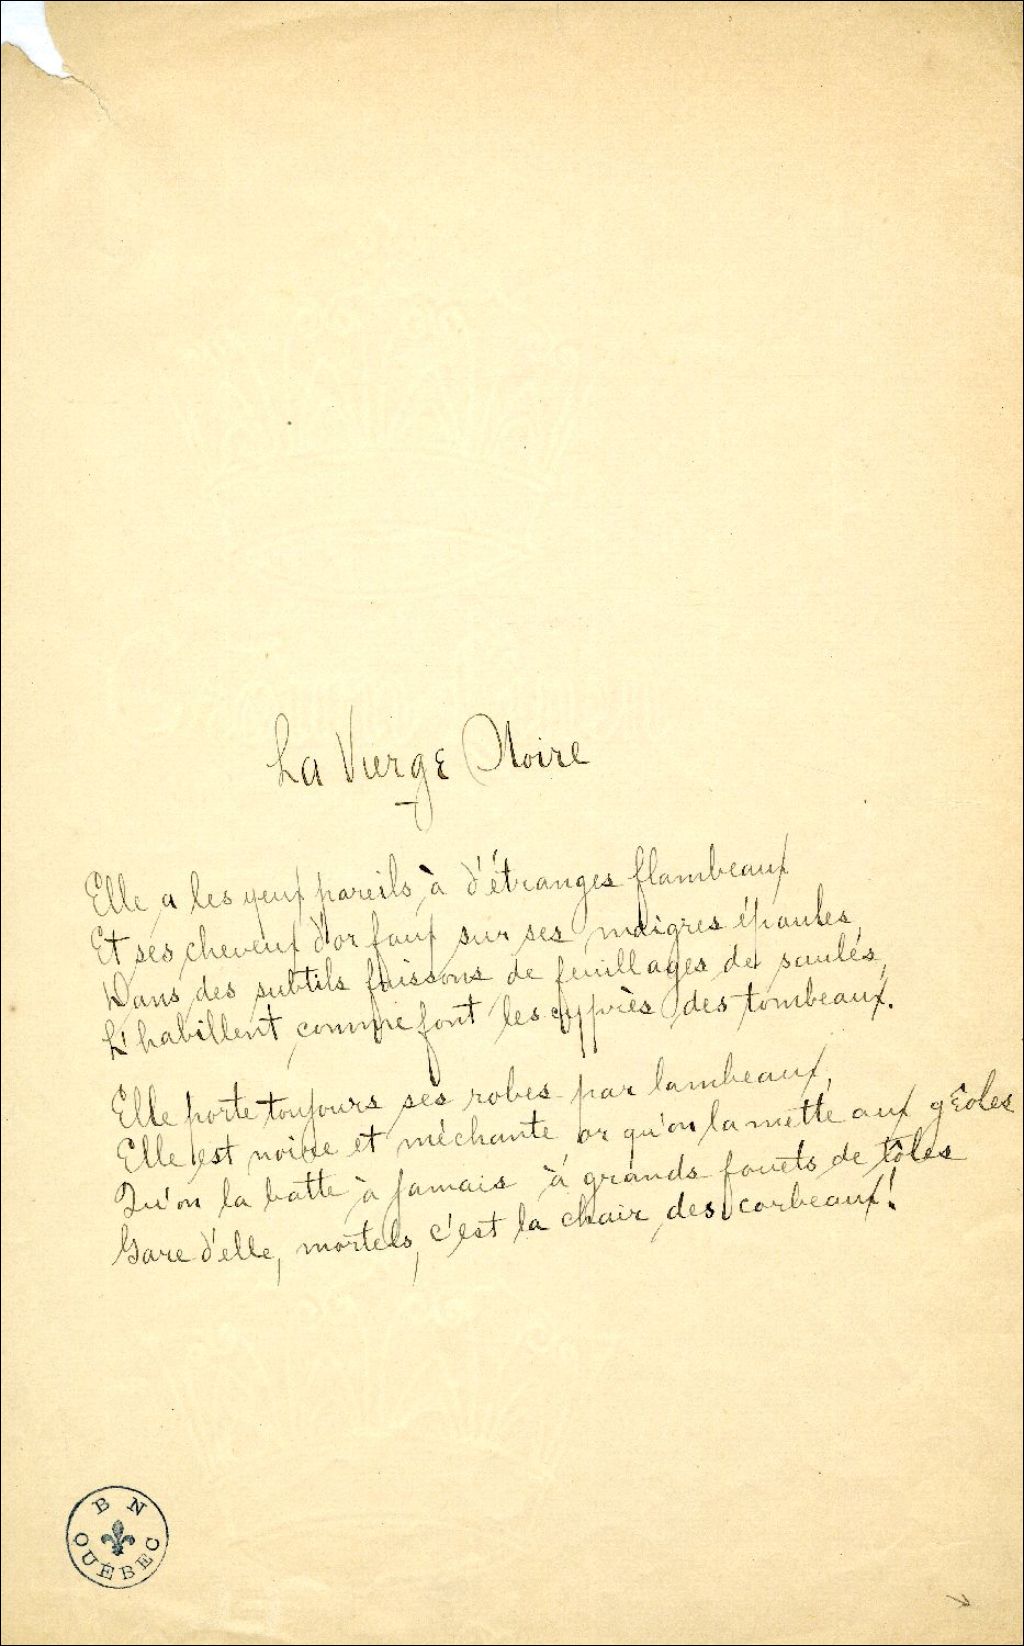 La Vierge Noire
Elle a les yeux pareils à d'étranges flambeaux
Et ses cheveux d'or faux sur ses maigres épaules,
Dans des subtils frissons de feuillages de saules,
L'habillent comme font les cyprès des tombeaux.
Elle porte toujours ses robes par lambeaux,
Elle est noire et méchante or qu'on la mette aux geôles
Qu'on la batte à jamais à grands fouets de tôles
Gare d'elle, mortels, c'est la chair des corbeaux!
B N
QUÉBEC